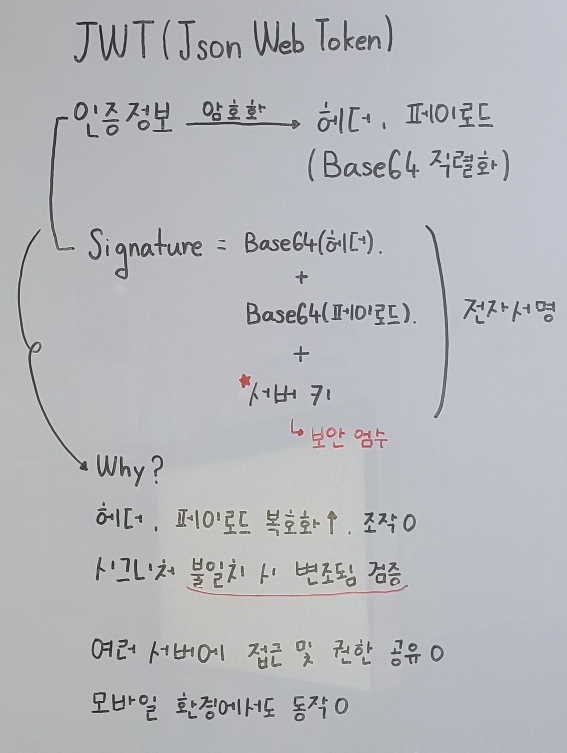 JWT(Json Web Token)
인증정보 암호화 → 헤더, 페이로드
(Base64 직렬화)
Signature = Base64(헤더).
+
Base64(페이로드).
+
*서버 키
↳ 보안 엄수
전자서명
Why?
헤더, 페이로드 복호화↑. 조작O
시그니처 불일치 시 변조됨 검증
여러 서버에 접근 및 권한 공유O
모바일 환경에서도 동작O